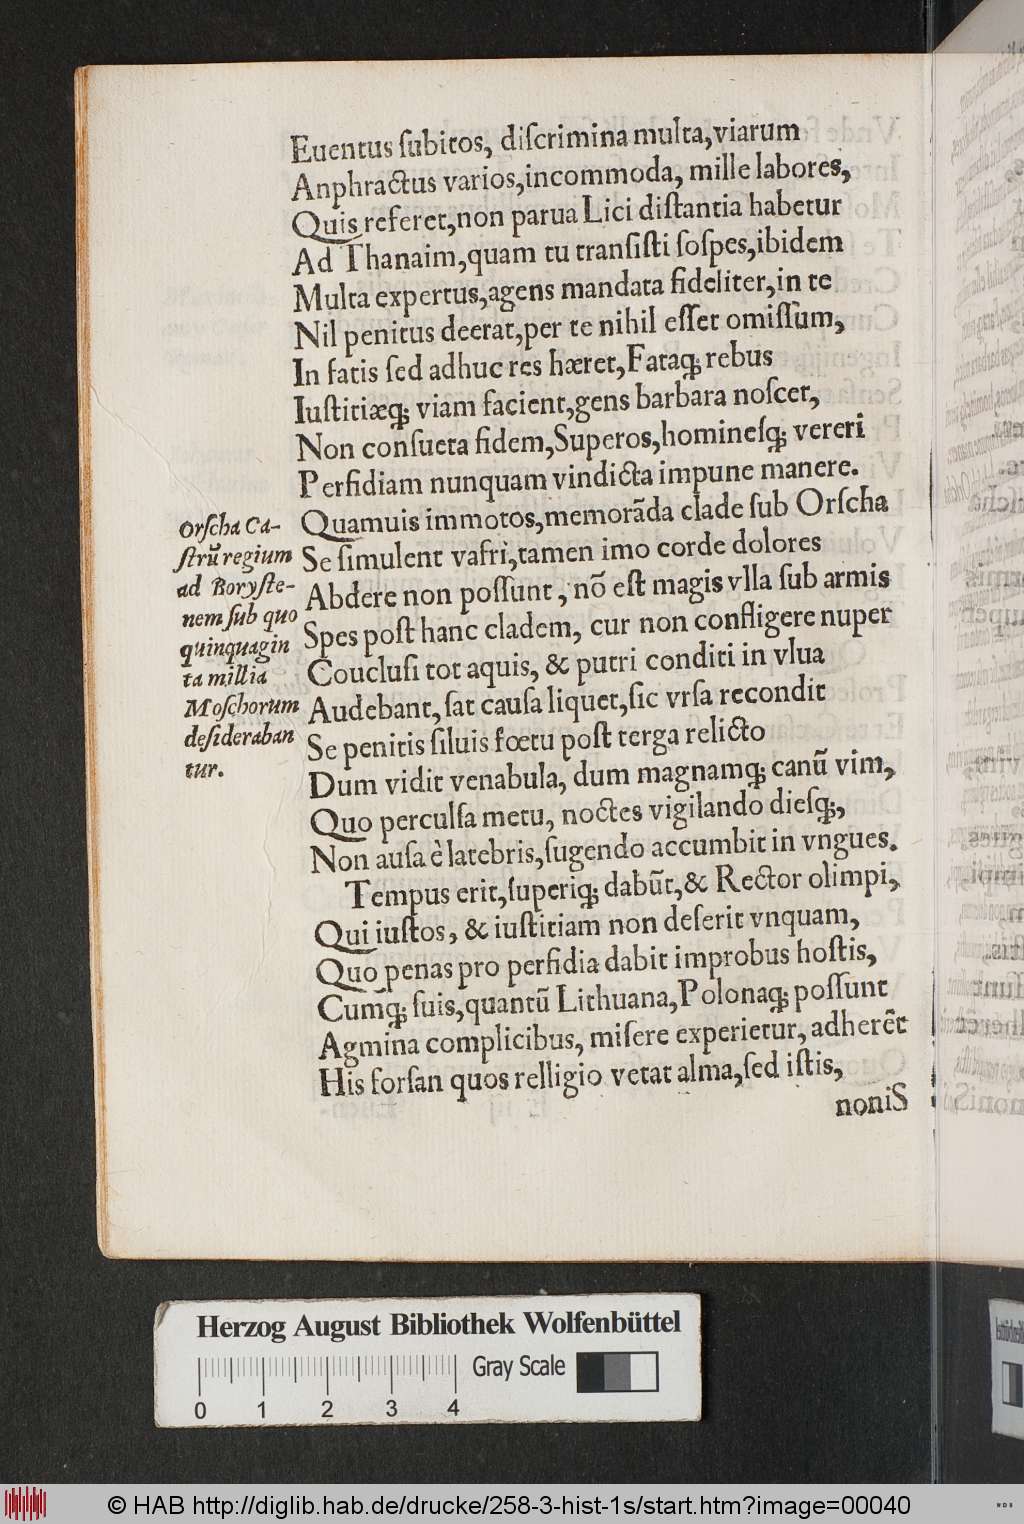 Euentus ſubitos, diſcrimina multa,viarum
Anphractus varios,incommoda, mille labores,
Quis referet,non parua Lici diſtantia habetur
Ad Thanaim,quam tu transiſti ſoſpes,ibidem
Multa expertus,agens mandata fideliter,in te
Nil penitus deerat,per te nihil eſſet omiſſum,
In fatis ſed adhuc res hæret,Fataq; rebus
Iuſtitiæq; viam facient,gens barbara noſcet,
Non conſueta fidem,Superos,homineſq; vereri
Perfidiam nunquam vindicta impune manere.
Quamuis immotos,memorãda clade ſub Orſcha
Se ſimulent vafri,tamen imo corde dolores
Abdere non poſſunt, nõ eſt magis vlla ſub armis
Spes poſt hanc cladem, cur non confligere nuper
Couclusi tot aquis, & putri conditi in vlua
Audebant, ſat cauſa liquet,ſic vrſa recondit
Se penitis ſiluis fœtu poſt terga relicto
Dum vidit venabula, dum magnamq; canũ vim,
Quo perculſa metu, noctes vigilando dieſq;,
Non auſa è latebris,ſugendo accumbit in vngues.
Tempus erit,ſuperiq; dabũt,& Rector olimpi,
Qui iuſtos, & iuſtitiam non deſerit vnquam,
Quo penas pro perfidia dabit improbus hoſtis,
Cumq; ſuis,quantũ Lithuana,Polonaq; poſſunt
Agmina complicibus, miſere experietur, adherẽt
His forſan quos relligio vetat alma,ſed iſtis,
noniS
Orſcha Ca-
ſtrũ regium
ad Boryſte-
nem ſub quo
quinquagin
ta millia
Moſchorum
deſideraban
tur.
Herzog August Bibliothek Wolfenbüttel
Gray Scale
0 1 2 3 4
© HAB http://diglib.hab.de/drucke/258-3-hist-1s/start.htm?image=00040